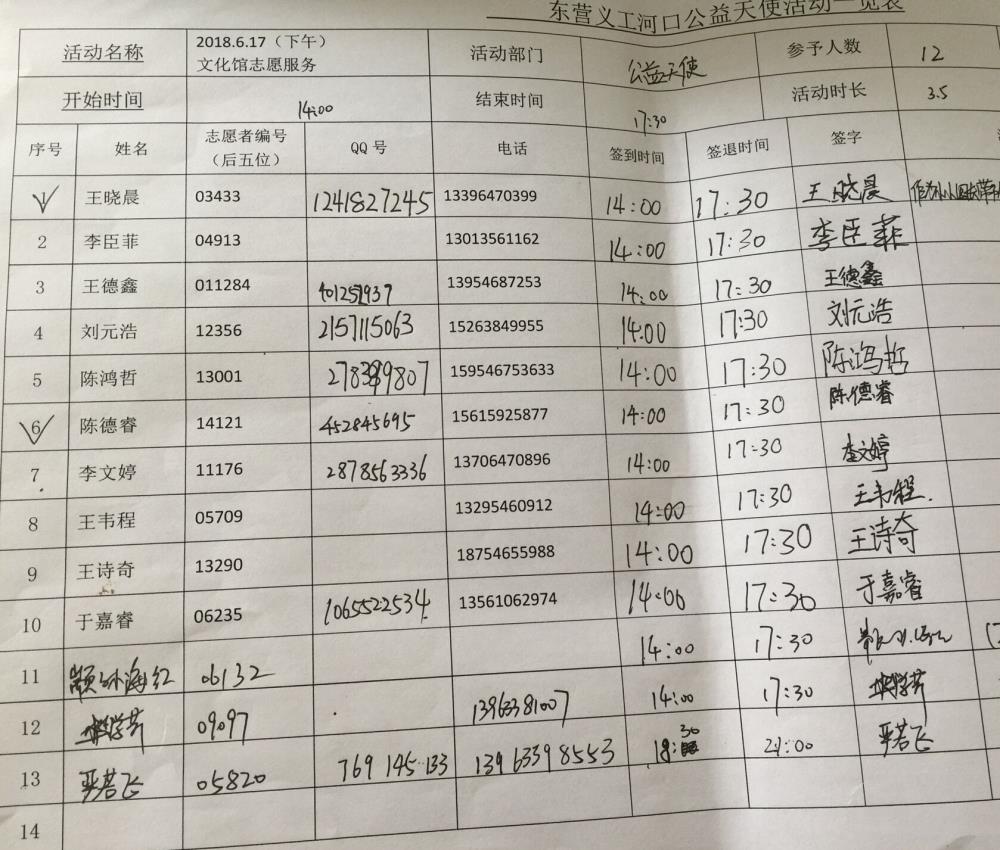 东营义工河口公益天使活动一览表
活动名称 2018.6.17（下午） 文化馆志愿服务 活动部门 公益天使 参予人数 12
开始时间 14:00 结束时间 17:30 活动时长 3.5
序号 姓名 志愿者编号（后五位） QQ号 电话 签到时间 签退时间 签字
1 王晓晨 03433 1241827245 13396470399 14:00 17:30 王晓晨
2 李臣菲 04913 13013561162 14:00 17:30 李臣菲
3 王德鑫 011284 13954687253 14:00 17:30 王德鑫
4 刘元浩 12356 2157115063 15263849955 14:00 17:30 刘元浩
5 陈鸿哲 13001 159546753633 14:00 17:30 陈鸿哲
6 陈德睿 14121 452845695 15615925877 14:00 17:30 陈德睿
7 李文婷 11176 2878563336 13706470896 14:00 17:30 李文婷
8 王韦程 05709 13295460912 14:00 17:30 王韦程.
9 王诗奇 13290 18754655988 14:00 17:30 王诗奇
10 于嘉睿 06235 1065522534 13561062974 14:00 17:30 于嘉睿
11 06132 14:00 17:30
12 09097 13963381007 14:00 17:30
13 严若飞 05820 769145133 13963398553 18:30 21:00 严若飞
14